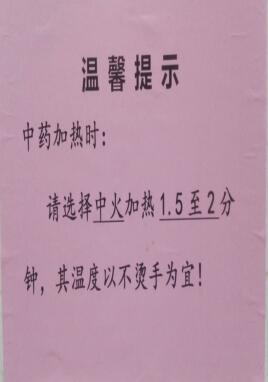 温馨提示
中药加热时：
请选择中火加热1.5至2分
钟，其温度以不烫手为宜！